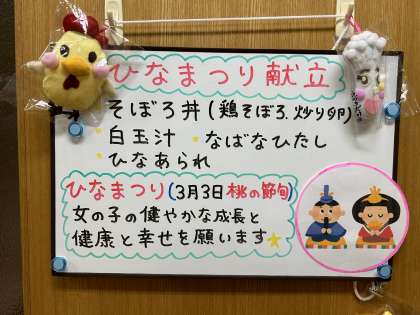 ひなまつり献立
そぼろ丼(鶏そぼろ.炒り卵)
白玉汁 なばなひたし
ひなあられ
ひなまつり(3月3日桃の節句)
女の子の健やかな成長と
健康と幸せを願います